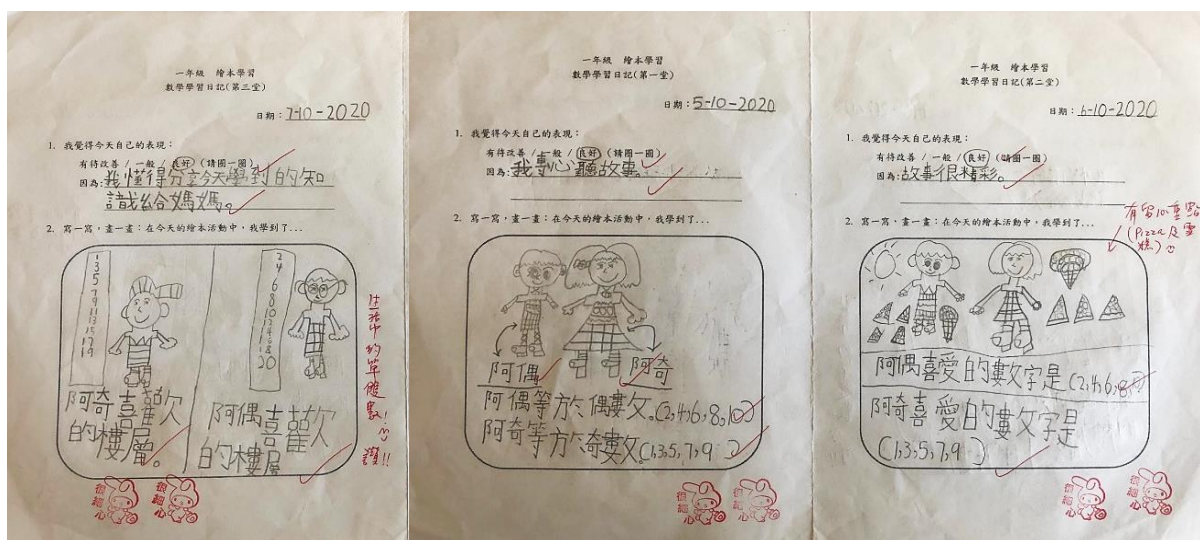 一年級 繪本學習
數學學習日記(第三堂)
日期：7-10-2020
1. 我覺得今天自己的表現：
有待改善 / 一般 / 良好 (請圈一圈)
因為：我懂得分享今天學到的知
識給媽媽。
2. 寫一寫，畫一畫：在今天的繪本活動中，我學到了...
1
3
5
7
9
11
13
15
17
19
2
4
6
8
10
12
14
16
18
20
阿奇喜歡
的樓層。
阿偶喜歡
的樓層
生活中的單雙數！
讚!!
很細心
很細心
一年級 繪本學習
數學學習日記(第一堂)
日期：5-10-2020
1. 我覺得今天自己的表現：
有待改善 / 一般 / 良好 (請圈一圈)
因為：我專心聽故事。
2. 寫一寫，畫一畫：在今天的繪本活動中，我學到了...
阿偶
阿奇
阿偶等於偶數。(2,4,6,8,10)
阿奇等於奇數。(1,3,5,7,9 )
很細心
很細心
一年級 繪本學習
數學學習日記(第二堂)
日期：6-10-2020
1. 我覺得今天自己的表現：
有待改善 / 一般 / 良好 (請圈一圈)
因為：故事很精彩。
2. 寫一寫，畫一畫：在今天的繪本活動中，我學到了...
有留心重點
(Pizza 及雪
糕)
阿偶喜愛的數字是(2,4,6,8, )
阿奇喜愛的數字是
(1,3,5,7,9 )
很細心
很細心